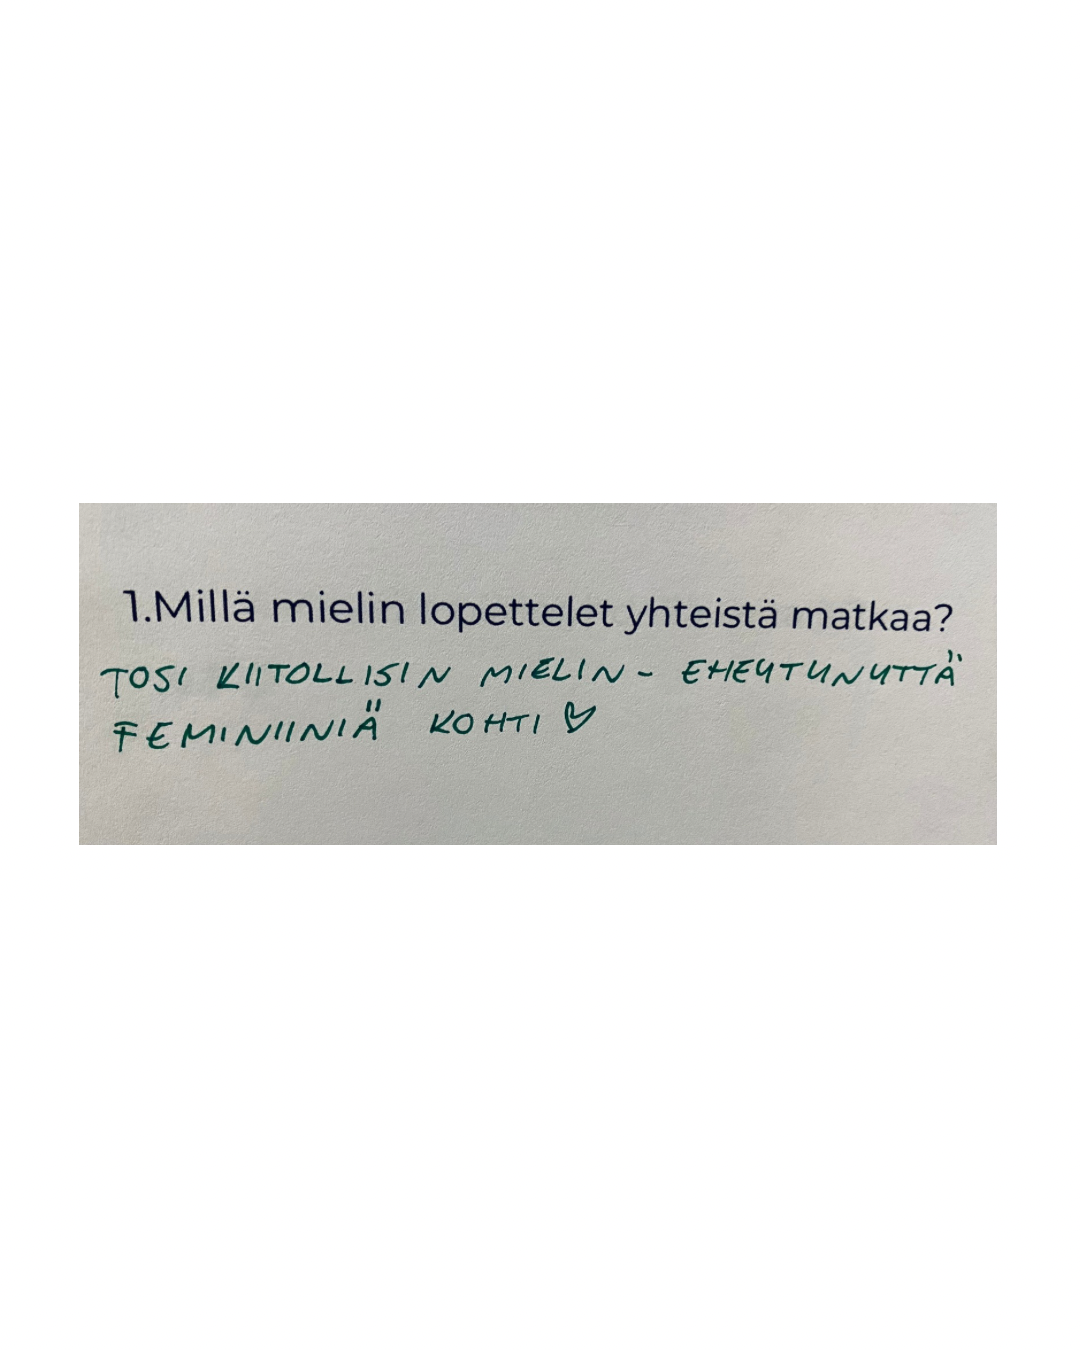 1.Millä mielin lopettelet yhteistä matkaa?
TOSI KIITOLLISIN MIELIN - EHEYTUNUTTÄ
FEMINIINIÄ KOHTI ♡